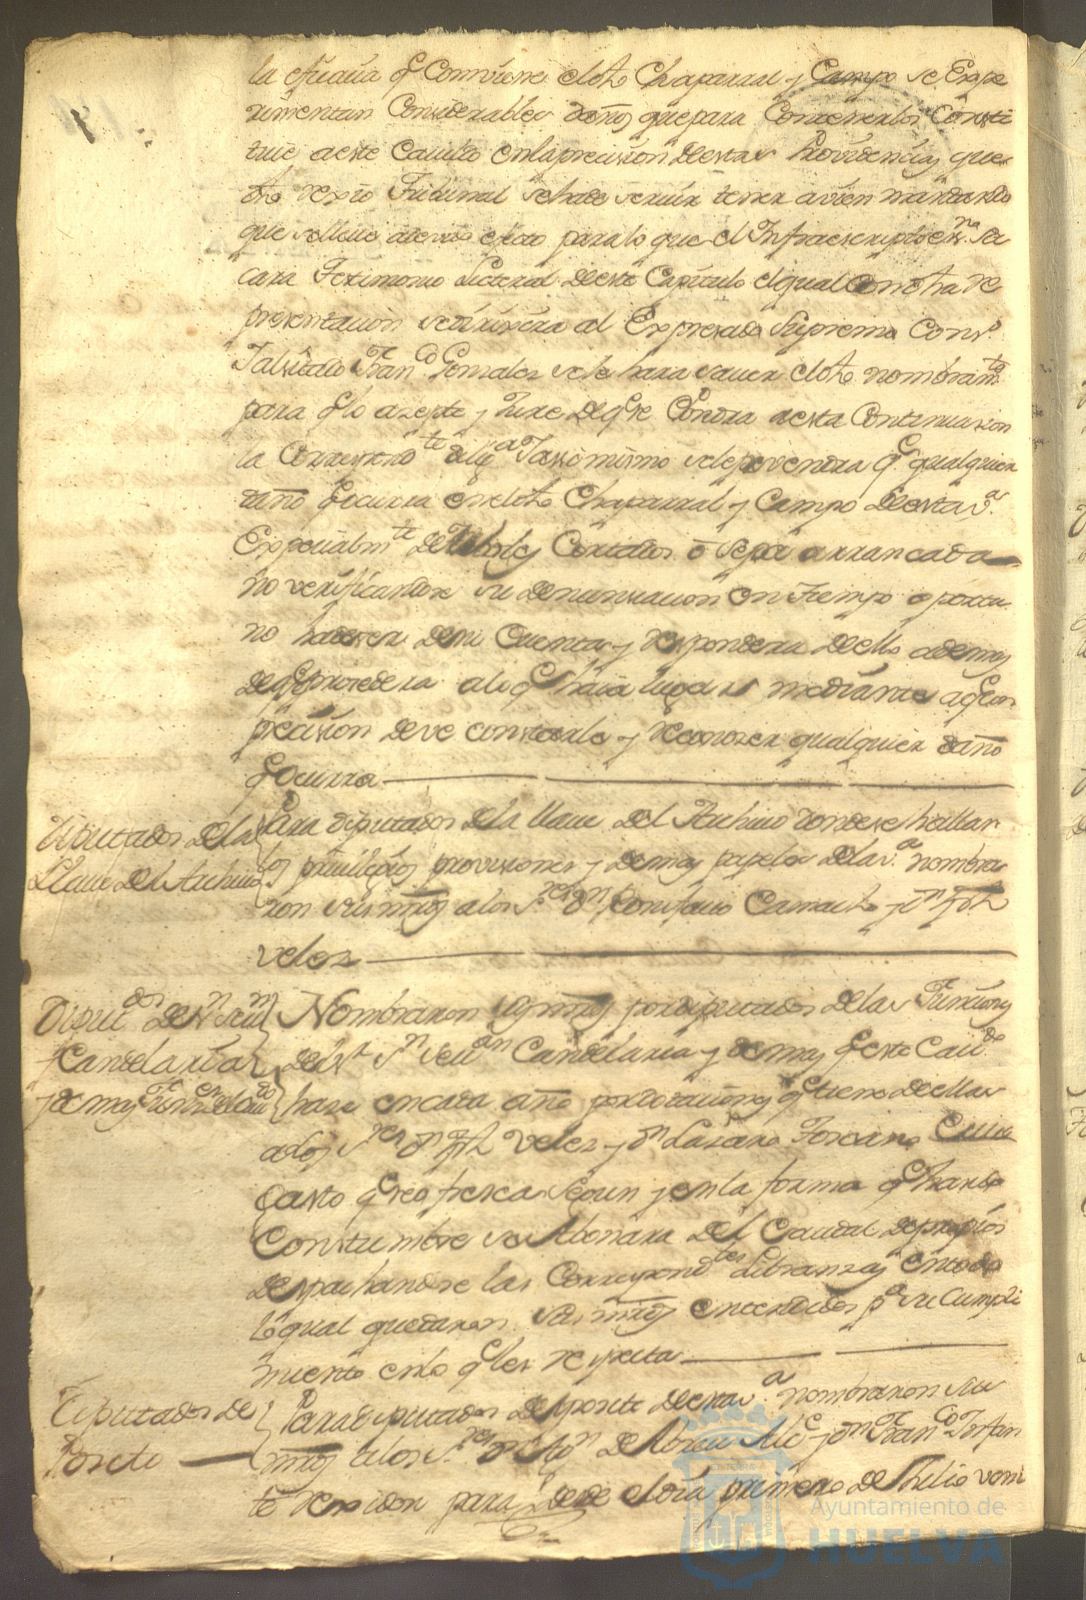 la eficacia q̃ Combiene dho Chaparral y Campo se Expe
rimentan Considerables daños que para Contenerlos Consti
tuie a este Cavildo en la precision de estas Providencias que
dho regio Tribunal se ha de servir tener avien mandando
que se lleve a devido efecto para lo que el Infraescripto es.no sa
cara Testimonio Literal de este Capitulo el qual Con dha re
presentacion se dirixira al Expresado Supremo Cons.o
Ial dho Fran.co Gonzales se le hara saver dho nombram.to
para q̃ lo azepte y Jure de q̃ se Pondra a esta Continuazion
la Correspond.te dilig.a Iassimismo se le prevendra q.e qualquier
daño q̃ ocurra en el dho Chaparral y Campo de esta v.a
Expecialm.te de Arboles Cortados ô Sepa arrancada
no verificandose su denunsiacion en tiempo oportu
no ha de ser de su Cuenta y respondera de ello ademas
de q̃ se prosedera a lo q.e haia lugar mediante aq̃ con
precision deve constarle y reconoser qualquier daño
q̃ Ocurra
Diputados de la
Llave del Archivo
Para diputados de la llave del Archivo donde se hallan
los privilegios provisiones y demas papeles de la v.a nombra
ron sus mrds a los S.res d.n Bonifacio Camacho y d.n Jph
velez
Diput.dos de N S.ra
Candelaria
y demas
Nombraron sus mrds por diputados de las Funciones
de la Candelaria y demas q̃ este Cav.do
haze en cada año por dotaciones q̃ tiene de ellas
a los S.res d.n Jph Velez y d.n Lazaro Toscano Cuio
Gasto q̃ se ofresca Segun y en la forma q̃ ha sido
Constumbre se Abonara del Caudal de propios
despachandose las Correspond.tes Libranzas en todo
lo qual quedaron sus mrds entendidos p.a su Cumpli
miento en lo q̃ les respecta
Diputados de
Posito
Para diputados del posito de esta v.a nombraron sus
mrds a los S.res d.n de Abreu Alc.e y d.n Fran.co Infan
te Rexidor para desde el dia primero de Julio veni
Ayuntamiento de
HUELVA